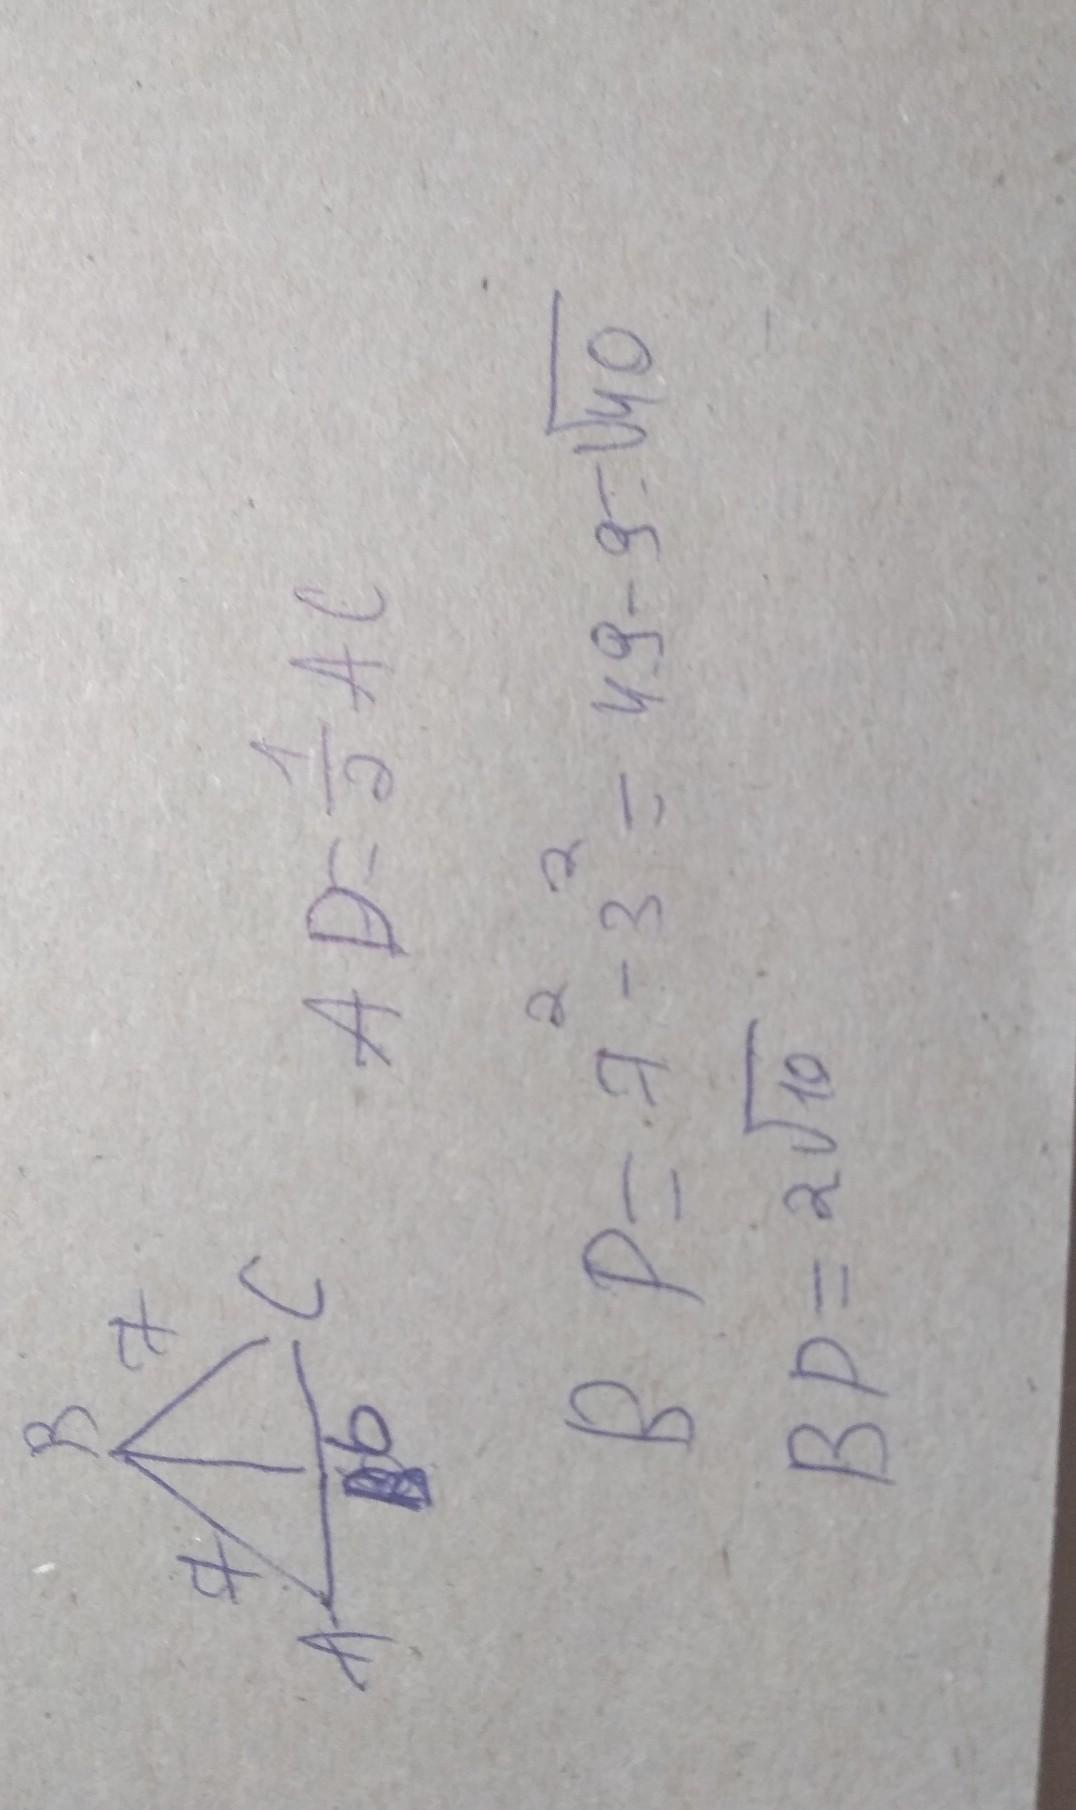 B
7 7
A C
6
AD = 1/2 AC
BD = 7² - 3² = 49 - 9 = √40
BD = 2√10